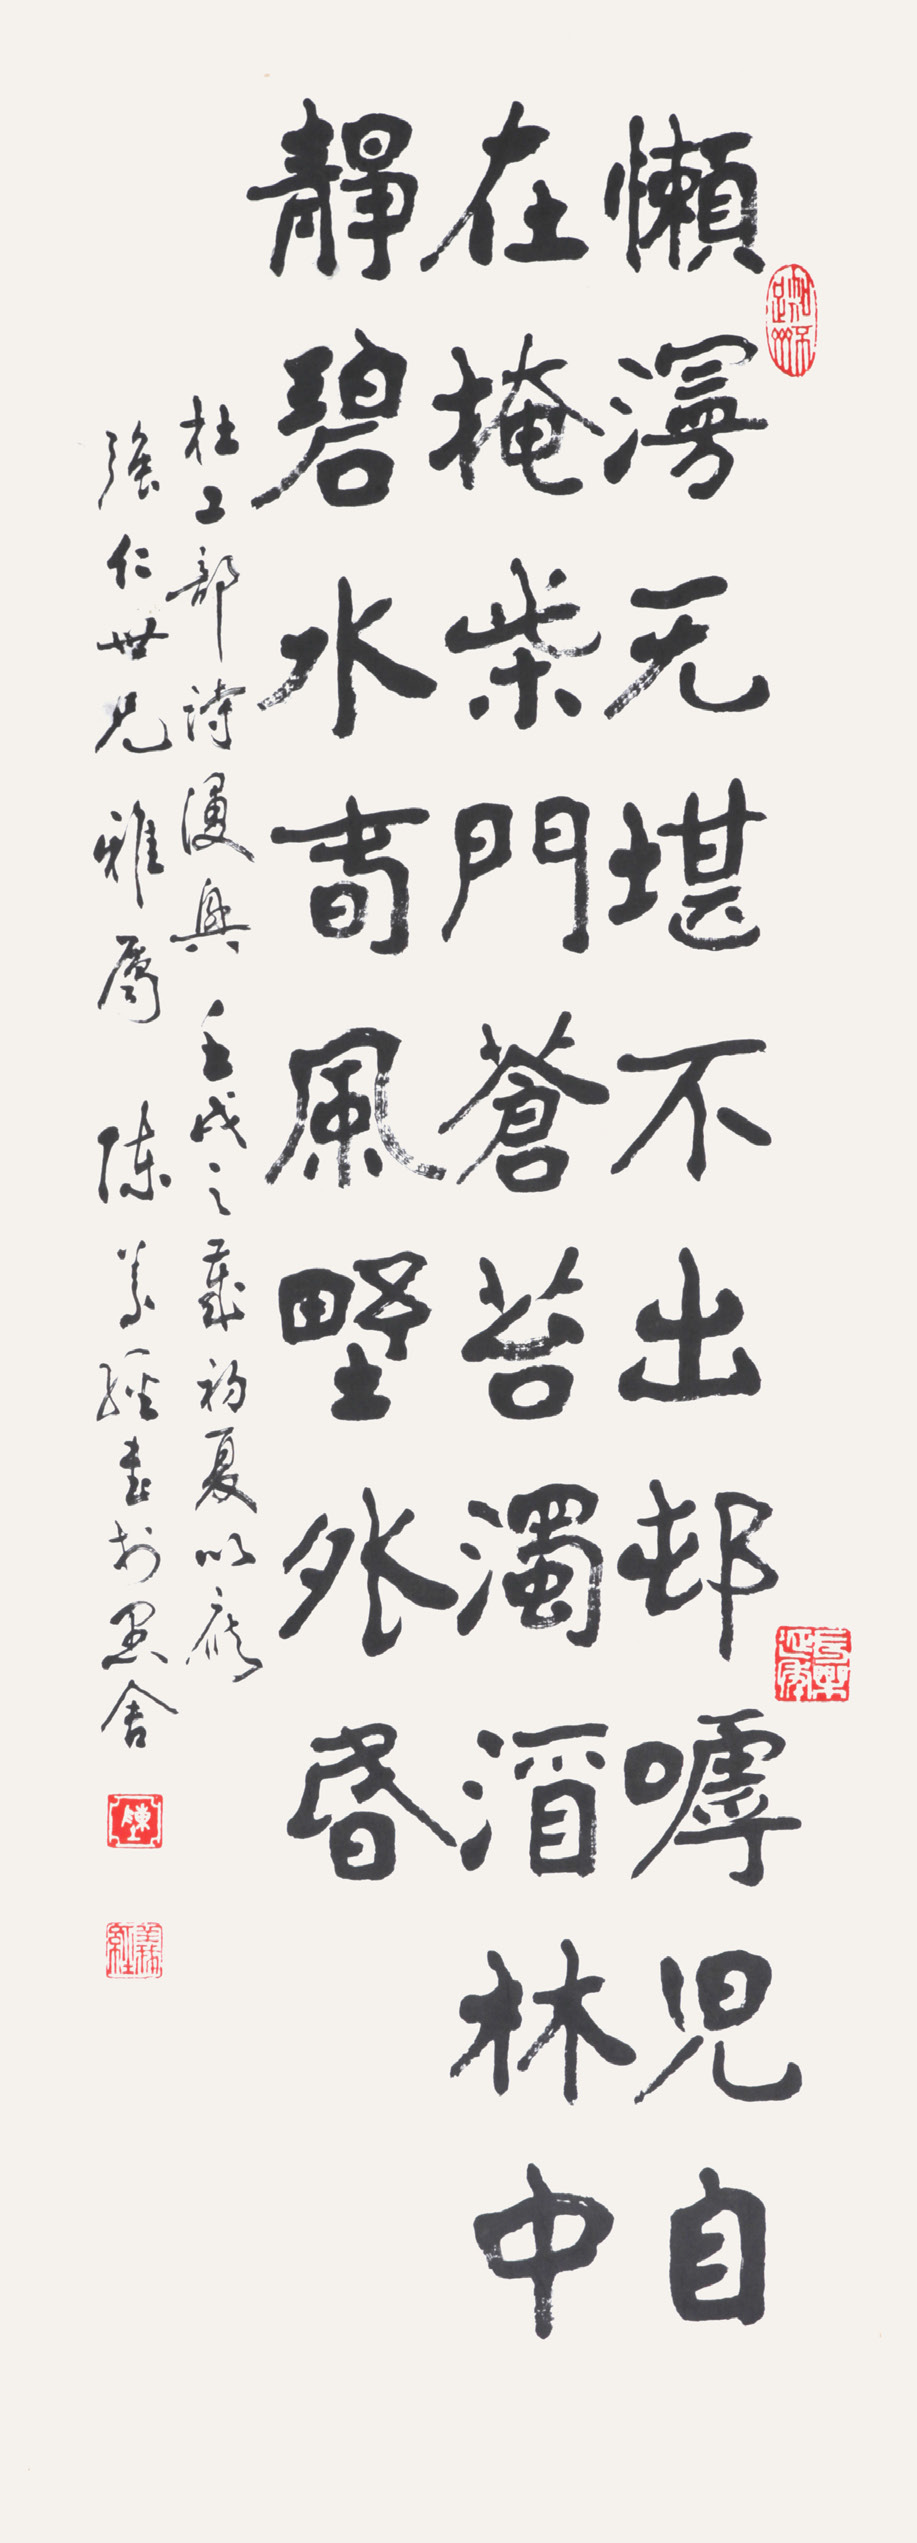 懶漫无堪不出邨嘑兒自
在掩柴門蒼苔濁酒林中
靜碧水萅風野外昏
杜工部詩漫興 壬戌之歲初夏以應
強仁世兄雅屬 陳義經書於墨舍
陳
義經